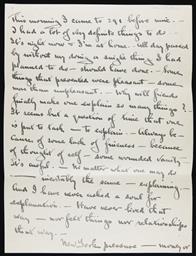 This morning I came to 291 before nine. —
I had a lot of very definite things to do —
It's night now & I'm at home. All day passed
by without my doing a single thing I had
planned to do — should have done. — Some
things that presented were pleasant — some
more than unpleasant. — Why will friends
finally make one explain so many things?
It seems but a question of time that one
is put to task — to explain — Always be-
cause of some lack of finesse — because
of thought of self — some wounded vanity —
It's awful. — No matter what one may do
— inevitably the same — explaining —
And I have never asked a soul for
explanation — Have never lived that
way — nor feel things nor relationships
that way. —
New York pressure — money or